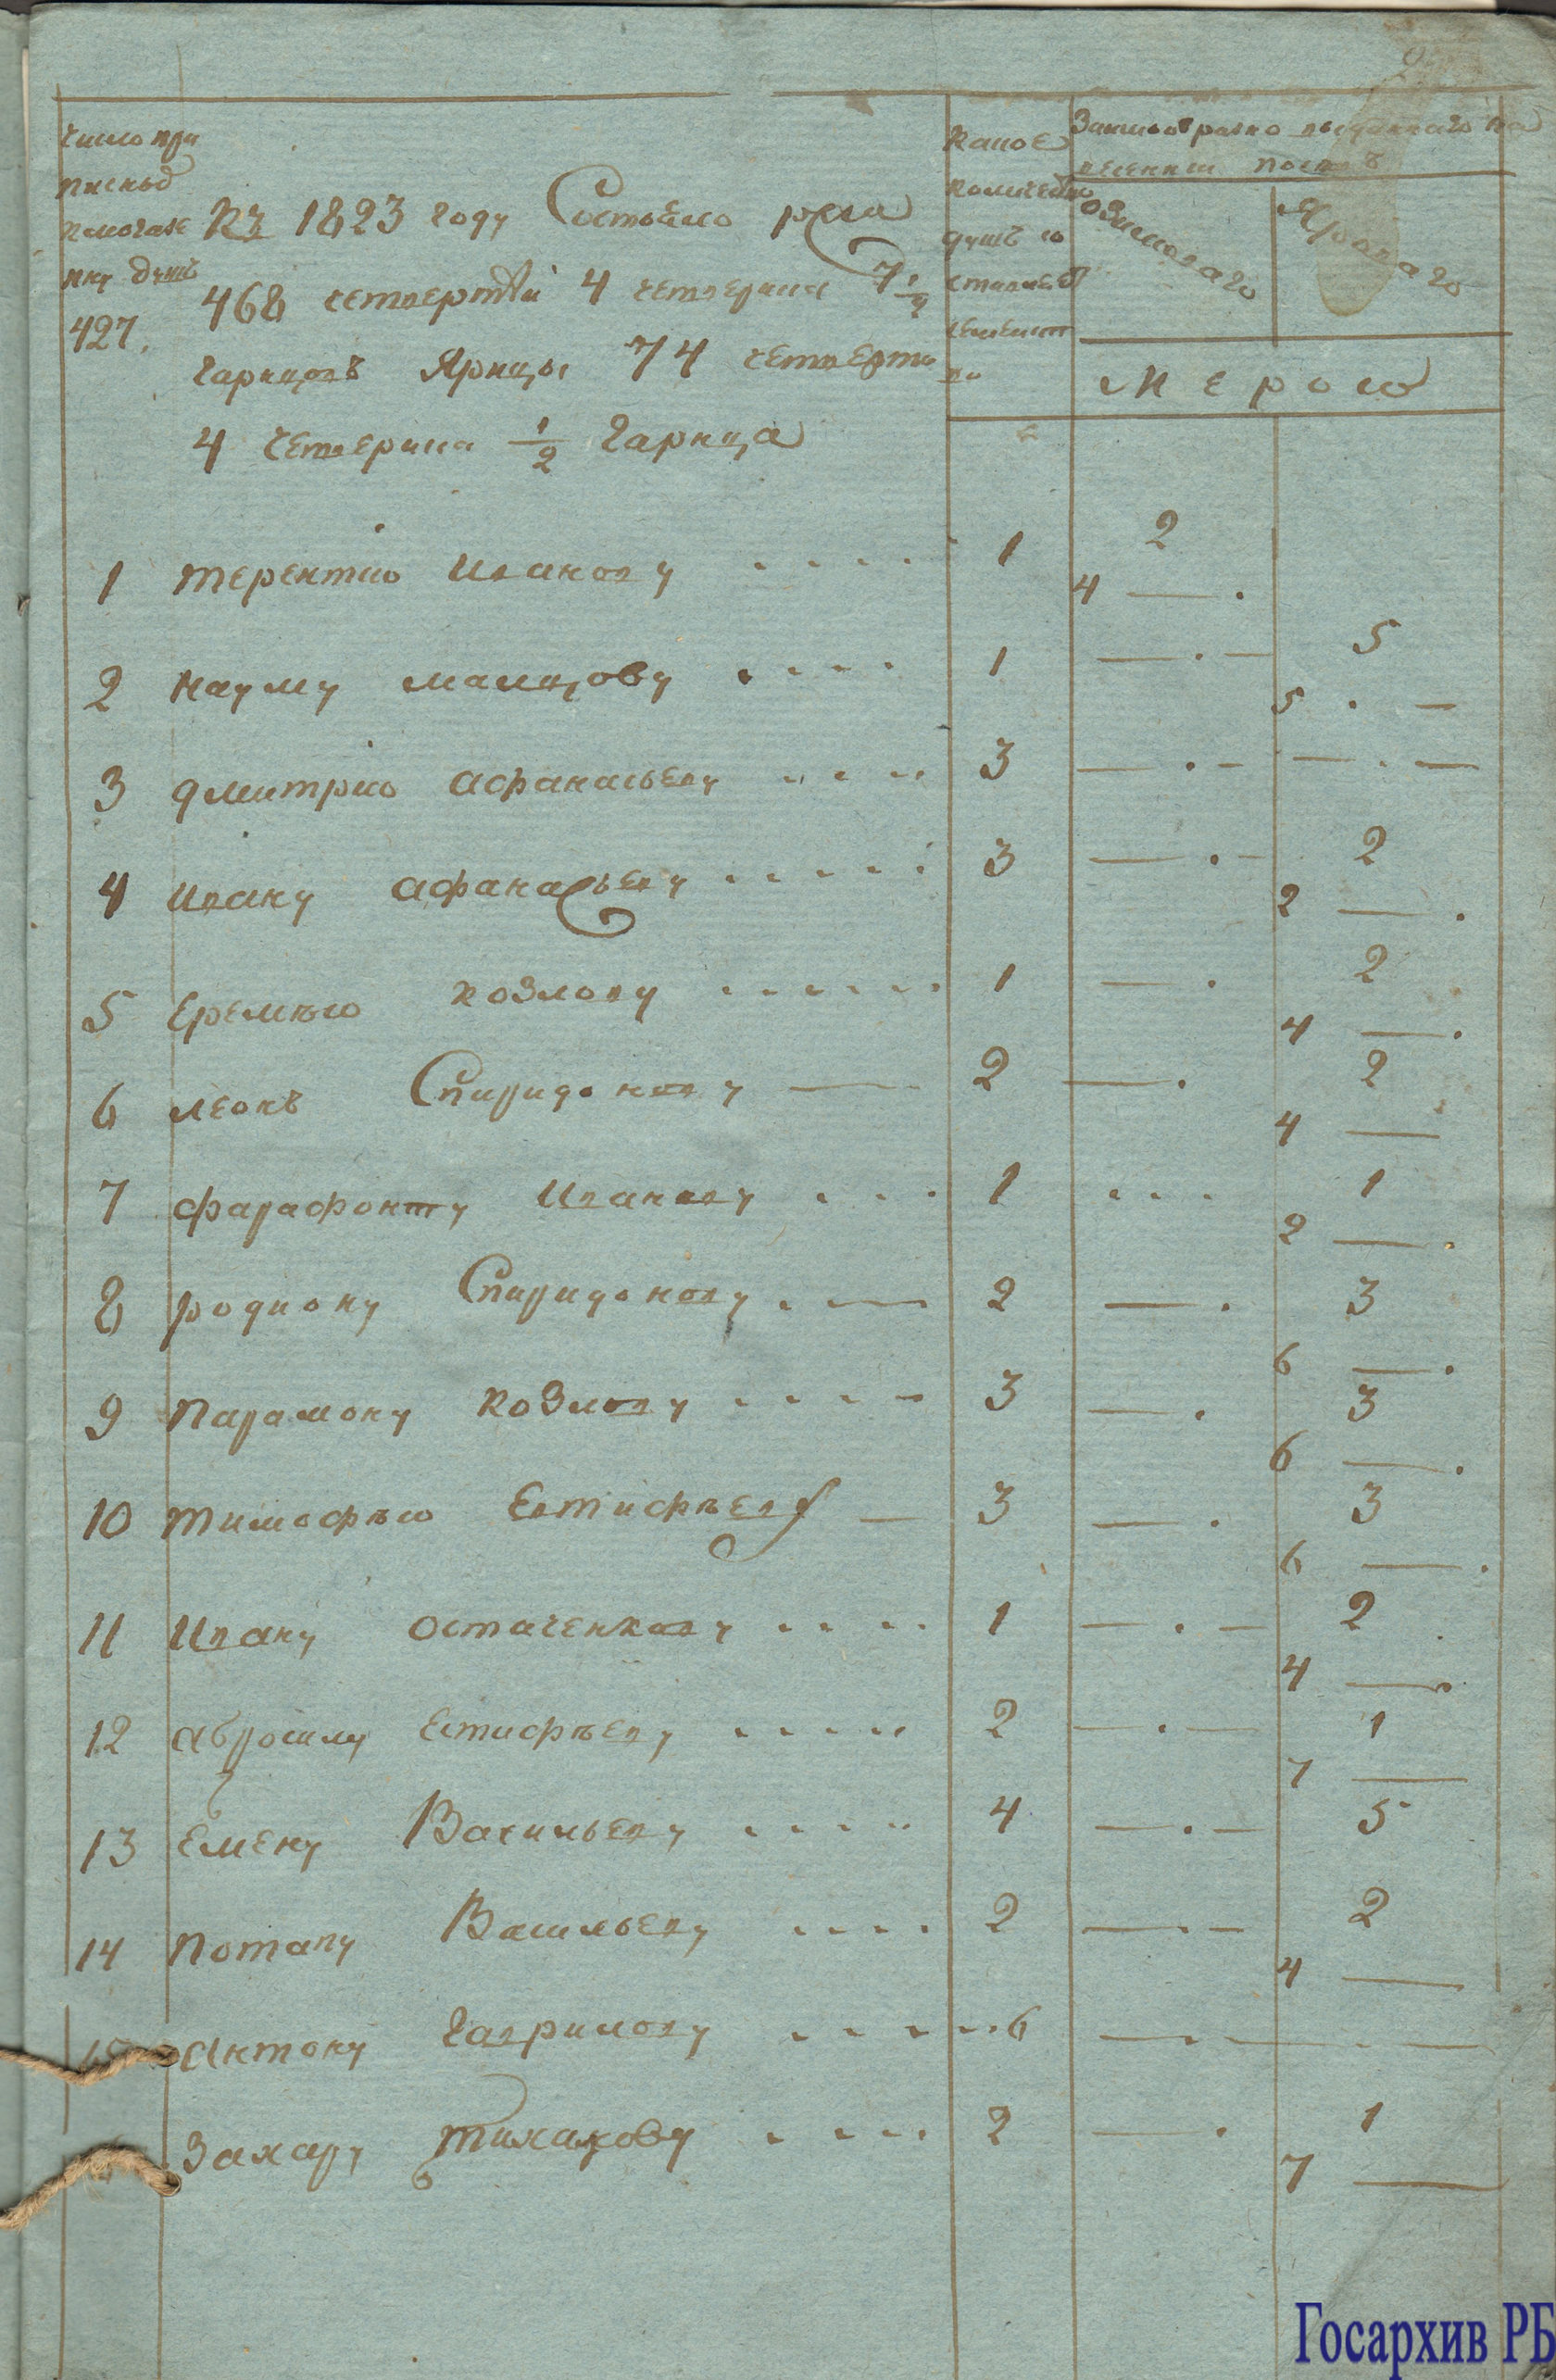 Число при
къ 1823 году Состояло ржи
468 четвертей 4 четверика 7 1/2
гарнцовъ Ярицы 74 четверти
4 четверика 1/2 гарнца
душъ
427.
Какое
количество
душъ
семейст
во
Заимообразно выданнаго на
посевъ
озимоваго
Яроваго
Мерою
1 терентию Иванову 1 2
4
2 Науму малцову 1 5
5
3 дмитрию афанасьеву 3
4 Ивану афанасьеву 3 2
2
5 Еремѣю козлову 1 2
4
6 леонъ Спиридонову 2 2
4
7 фарафонту Иванову 1 1
2
8 родиону Спиридонову 2 3
6
9 Парамону козлову 3 3
6
10 тимофѣю Евтифѣеву 3 3
6
11 Ивану остаченкову 1 2
4
12 Евтифѣеву 2 1
7
13 Емену Васильеву 4 5
14 Потапу Васильеву 2 2
4
15 Антону Гаврилову 6
Захару 2 1
7
Госархив РБ